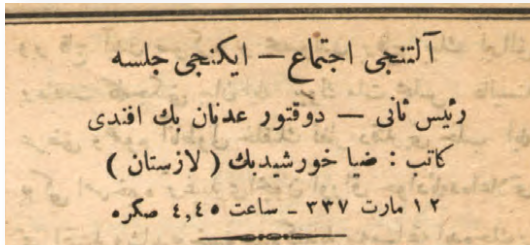 آلتنجی اجتماع — ایکنجی جلسه
رئیس ثانی — دوقتور عدنان بك افندی
كاتب : ضیا خورشیدبك ( لازستان )
١٢ مارت ٣٣٧ ــ ساعت ٤,٤٥ صكره